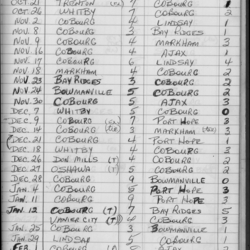 OCT 21 TRENTON 7 COBOURG
OCT 26 WHITBY 2 COBOURG 2
NOV. 2 COBOURG 2 LINDSAY
NOV. 8 COBOURG 3 BAY RIDGES 1
NOV. 9 COBOURG 4 MARKHAM 3
NOV. 16 COBOURG 4 AJAX 1
NOV. 17 COBOURG 6 LINDSAY 4
NOV. 18 MARKHAM 4 COBOURG 2
NOV. 23 BAY RIDGES 3 COBOURG 2
NOV. 24 BOWMANVILLE COBOURG 2
NOV. 30 COBOURG 5 AJAX 3
DEC. 7 WHITBY 5 COBOURG 0
DEC. 9 COBOURG PORT HOPE 3
DEC. 14 COBOURG MARKHAM 3
DEC. 21 COBOURG 4 PORT HOPE 1
DEC. 18 WHITBY 4 COBOURG
DEC. 26 DON MILLS (T) COBOURG 3
DEC. 27 OSHAWA (T) 5 COBOURG
DEC. 28 COBOURG 9 BOWMANVILLE 0
JAN. 4 COBOURG 5 PORT HOPE 3
JAN. 11 COBOURG 9 PORT HOPE
JAN. 12 COBOURG (T) 7 BAY RIDGES 5
(T) COBOURG 3
JAN. 25 COBOURG 3 BOWMANVILLE 1
JAN. 29 LINDSAY 5 COBOURG
FEB COBOURG